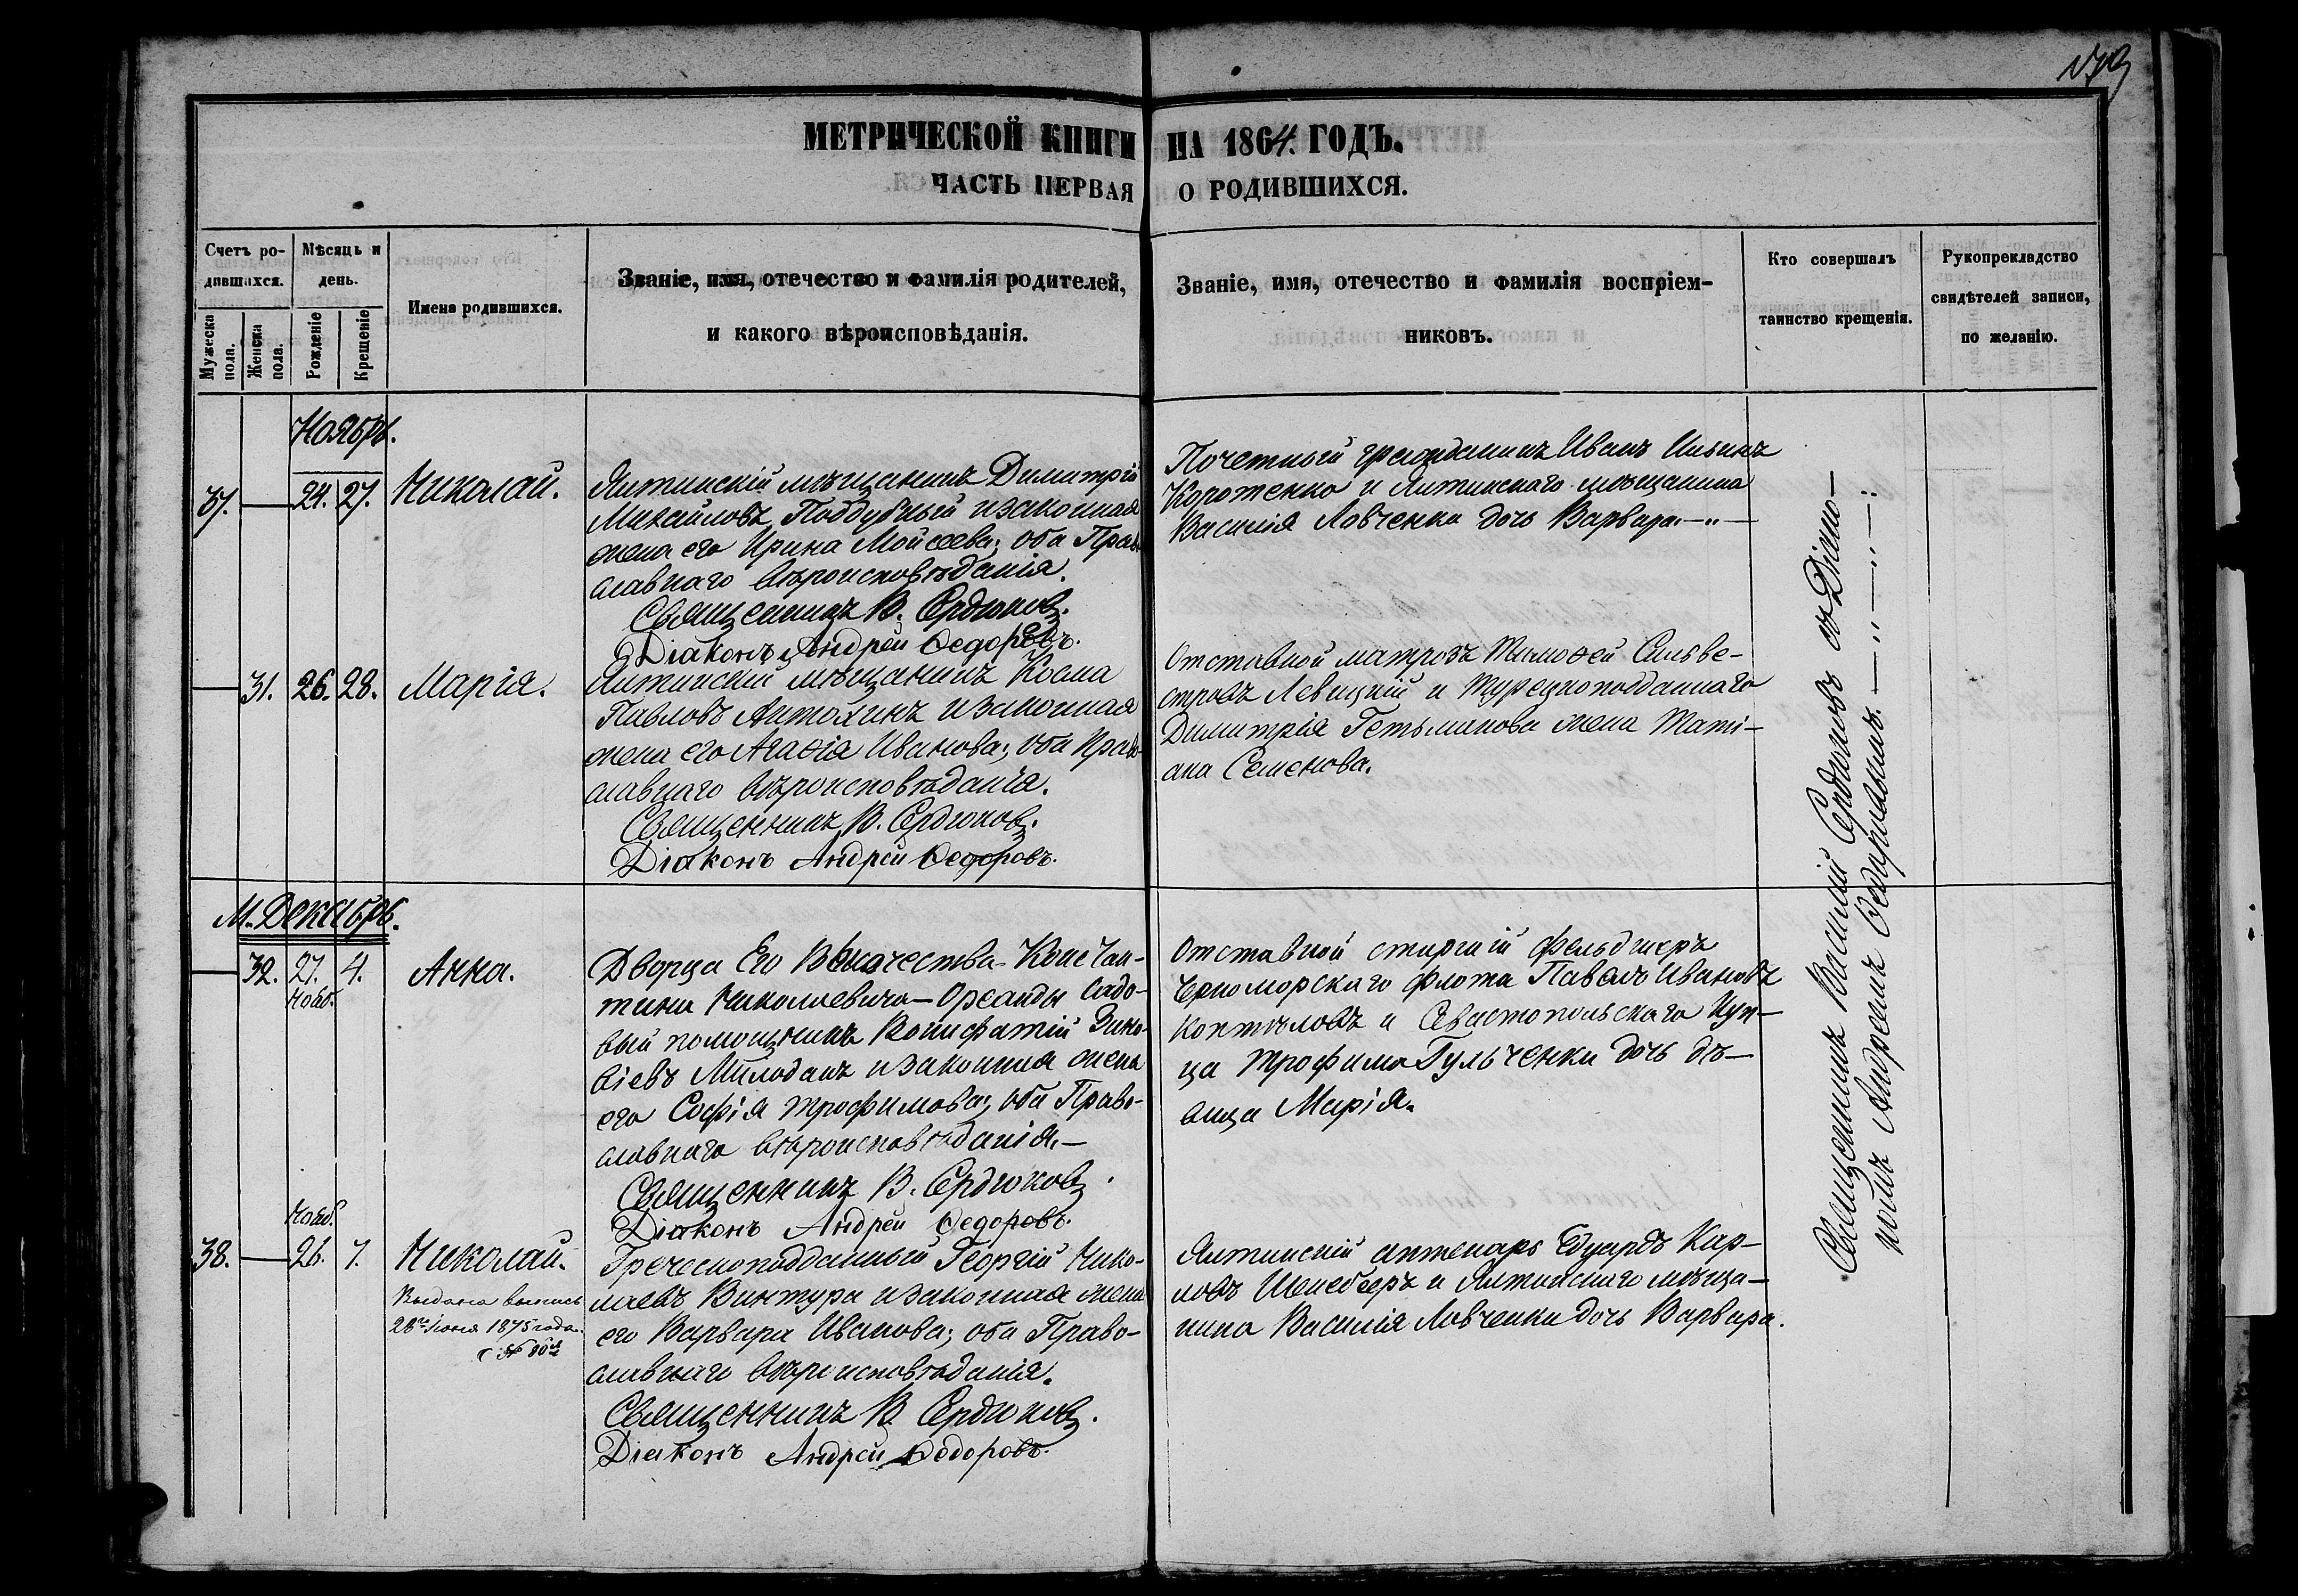 МЕТРИЧЕСКОЙ КНИГИ НА 1864. ГОДЪ.
ЧАСТЬ ПЕРВАЯ О РОДИВШИХСЯ.
Счетъ ро-
дившихся.
Мужеска
пола.
Женска
пола.
Мѣсяцъ и
день.
Рожденіе
Крещеніе
Имена родившихся.
Званіе, имя, отечество и фамилія родителей,
и какого вѣроисповѣданія.
Званіе, имя, отечество и фамилія воспріем-
никовъ.
Кто совершалъ
таинство крещенія.
Рукоприкладство
свидѣтелей записи,
по желанію.
Ноябрь.
37. — 24. 27. Николай.
Ялтинскій мѣщанинъ Димитрій
Михайловъ Поддубный и законная
жена его Ирина Мойсеева; оба Право-
славнаго вѣроисповѣданія.
Священникъ В. Сердюковъ.
Діаконъ Андрей Ѳедоровъ.
Почетный гражданинъ Иванъ Ильинъ
Коротенко и Ялтинскаго мѣщанина
Василія Ловченка дочь Варвара. —"—
— 31. 26. 28. Марія.
Ялтинскій мѣщанинъ Косма
Павловъ Антохинъ и законная
жена его Агаѳія Иванова; оба Право-
славнаго вѣроисповѣданія.
Священникъ В. Сердюковъ.
Діаконъ Андрей Ѳедоровъ.
Отставной матрозъ Тимоѳей Сильве-
стровъ Левицкій и Турецкоподданнаго
Димитрія Гетьманова жена Тати-
ана Семенова.
М. Декабрь.
— 32. 27. 4. Анна.
Нояб.
Дворца Его Высочества Констан-
тина Николаевича — Ореанды садо-
вый помощникъ Вонифатій Зино-
віевъ Милоданъ и законная жена
его Софія Трофимова; оба Право-
славнаго вѣроисповѣданія. —
Священникъ В. Сердюковъ.
Діаконъ Андрей Ѳедоровъ.
Отставной старшій фельдшеръ
Черноморскаго флота Павелъ Ивановъ
Коптѣловъ и Севастопольскаго Куп-
ца Трофима Гульченки дочь дѣ-
вица Марія.
Нояб.
38. — 26. 7. Николай.
Выдана выпись
28го Іюня 1875 года
с № 80й
Греческоподданный Георгій Нико-
лаевъ Винтура и законная жена
его Варвара Иванова; оба Право-
славнаго вѣроисповѣданія.
Священникъ В Сердюковъ.
Діаконъ Андрей Ѳедоровъ.
Ялтинскій аптекарь Едуардъ Кар-
ловъ и Ялтинскаго мѣща-
нина Василія Ловченки дочь Варвара.
Священникъ Василій Сердюковъ съ Діако-
номъ Андреемъ Ѳедоровымъ. —"—"—